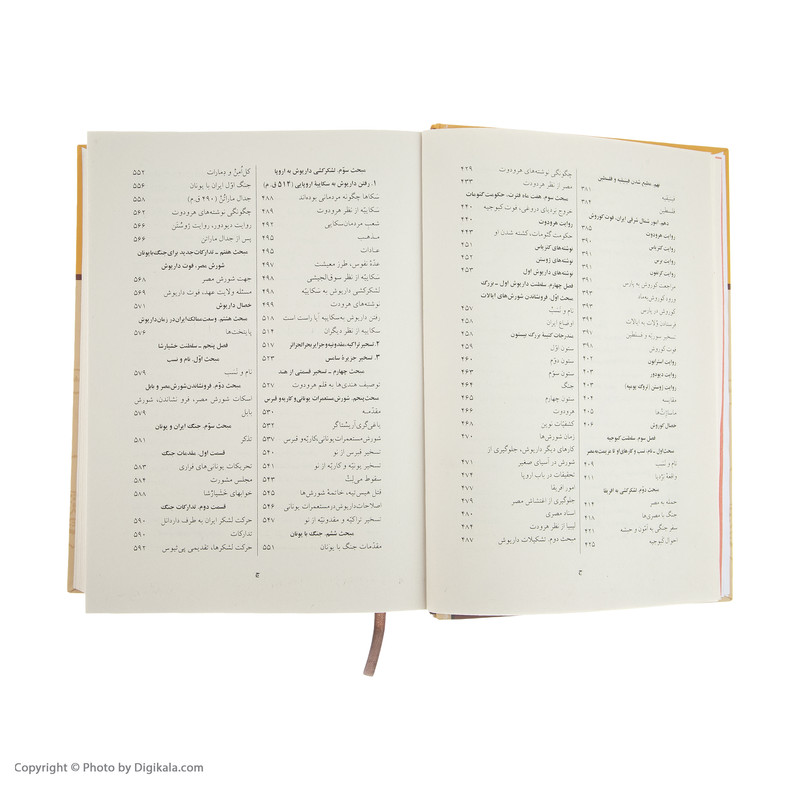 نهم. مطیع شدن فینیقیه و فلسطین
فینیقیه ۳۸۱
فلسطین ۳۸۴
دهم. امور شمال شرقی ایران، فوت کوروش
روایت هرودوت ۳۸۵
روایت کتزیاس ۳۹۰
روایت برس ۳۹۱
روایت کزنفون ۳۹۱
مراجعت کوروش به پارس
ورود کوروش به ماد ۳۹۳
کوروش در پارس ۳۹۳
فرستادن ولات به ایالات ۳۹۴
تسخیر سوریّه و فلسطین
فوت کوروش
روایت استرابون ۴۰۲
روایت دیودور ۴۰۳
روایت ژوستن (تروگ پومپه) ۴۰۳
مقایسه ۴۰۴
ماساژت‌ها ۴۰۵
خصال کوروش ۴۰۶
فصل سوم. سلطنت کبوجیه
مبحث اول. نام و نسب و کارهای او تا عزیمت به مصر
نام و نسب ۴۰۹
واقعهٔ بَردیا ۴۱۱
مبحث دوم. لشکرکشی به آفریقا
حمله به مصر ۴۱۴
جنگ با مصری‌ها ۴۱۸
سفر جنگی به آمّون و حبشه ۴۲۱
احوال کبوجیه ۴۲۵
چگونگی نوشته‌های هرودوت ۴۲۹
مصر از نظر هرودوت ۴۳۳
مبحث سوم. هفت ماه فترت، حکومت گئومات
خروج بَردیای دروغی، فوت کبوجیه ۴۴۰
روایت هرودوت ۴۴۰
حکومت گئومات، کشته شدن او ۴۴۳
نوشته‌های کتزیاس ۴۵۱
نوشته‌های ژوستن ۴۵۲
نوشته‌های داریوش اول ۴۵۳
فصل چهارم. سلطنت داریوش اول ـ بزرگ
مبحث اوّل. فرونشاندن شورش‌های ایالات
نام و نَسَب ۴۵۷
اوضاع ایران ۴۵۸
مندرجات کتیبهٔ بزرگ بیستون ۴۵۸
ستون اوّل ۴۵۹
ستون دوّم ۴۶۰
ستون سوّم ۴۶۳
جنگ ۴۶۴
ستون چهارم ۴۶۵
هرودوت ۴۶۶
کشفیّات نوین ۴۶۸
زمان شورش‌ها ۴۷۰
کارهای دیگر داریوش، جلوگیری از
شورش در آسیای صغیر ۴۷۱
تحقیقات در باب اروپا ۴۷۴
امور آفریقا ۴۷۷
جلوگیری از اغتشاش مصر ۴۷۹
اسناد مصری ۴۸۰
لیبیا از نظر هرودت ۴۸۴
مبحث دوم. تشکیلات داریوش ۴۸۷
ج
مبحث سوّم. لشکرکشی داریوش به اروپا
۱. رفتن داریوش به سکاییهٔ اروپایی (۵۱۴ ق.م)
سکاها چگونه مردمانی بوده‌اند ۴۸۸
سکاییّه از نظر هرودوت ۴۸۹
شعب مردمان سکایی ۴۹۲
مذهب ۴۹۵
عادات ۴۹۵
عدّهٔ نفوس، طرز معیشت ۴۹۷
سکاییه از نظر سوق‌الجیشی ۴۹۸
لشکرکشی داریوش به سَکاییّه ۴۹۸
نوشته‌های هرودت ۴۹۹
رفتن داریوش به سکاییه آیا راست است ۵۱۸
سکاییه از نظر دیگران ۵۱۴
۲. تسخیر تراکیه، مقدونیه و جزایر بحرالجزائر ۵۱۷
۳. تسخیر جزیرهٔ سامس ۵۲۳
مبحث چهارم ـ تسخیر قسمتی از هند
توصیف هندی‌ها به قلم هرودت ۵۲۷
مبحث پنجم. شورش مستعمرات یونانی و کاریه و قبرس
مقدّمه ۵۳۰
یاغی‌گری آریستاگر ۵۳۲
شورش مستعمرات یونانی، کاریّه و قبرس ۵۳۷
تسخیر قبرس از نو ۵۴۰
تسخیر یونیّه و کاریه از نو ۵۴۱
سقوط می‌لِتْ ۵۴۳
قتل هیس‌تیه، خاتمهٔ شورش‌ها ۵۴۵
اصلاحات داریوش در مستعمرات یونانی ۵۴۶
تسخیر تراکیّه و مقدونیّه از نو ۵۴۷
مبحث ششم. جنگ با یونان
مقدّمات جنگ با یونان ۵۵۱
کل‌اُمِنْ و دِمارات ۵۵۲
جنگ اوّل ایران با یونان ۵۵۶
جدال ماراتُنْ (۴۹۰ ق.م) ۵۵۸
چگونگی نوشته‌های هرودوت ۵۶۲
روایت دیودور، روایت ژوستن ۵۶۶
پس از جدال ماراتن ۵۶۶
مبحث هفتم ـ تدارکات جدید برای جنگ با یونان
شورش مصر، فوت داریوش
جهت شورش مصر ۵۶۸
مسئله ولایت عهد، فوت داریوش ۵۶۹
خصال داریوش ۵۷۱
مبحث هشتم. وسعت ممالک ایران در زمان داریوش
پایتخت‌ها ۵۷۶
فصل پنجم ـ سلطنت خشیارشا
مبحث اوّل. نام و نسب
نام و نَسَب ۵۷۹
مبحث دوّم. فرونشاندن شورش مصر و بابل
اسکات شورش مصر، فرو نشاندن، شورش
بابل ۵۷۹
مبحث سوّم. جنگ ایران و یونان
تذکر ۵۸۱
قسمت اول. مقدمات جنگ
تحریکات یونانی‌های فراری ۵۸۳
مجلس مشورت ۵۸۴
خوابهای خَشیارْشا ۵۸۸
قسمت دوم. تدارکات جنگ
حرکت لشکر ایران به طرف داردانل ۵۹۰
تدارکات ۵۹۰
حرکت لشکرها، تقدیمی پی‌ثیوس ۵۹۲
ج
Copyright © Photo by Digikala.com